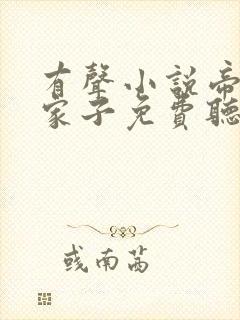 有聲小說帝
家子免費聽
彧南茜